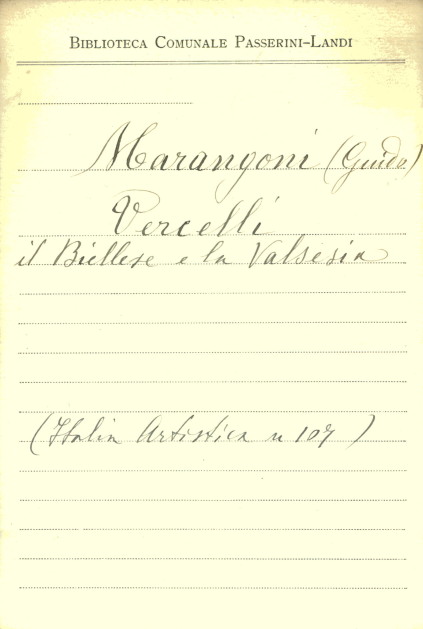 BIBLIOTECA COMUNALE PASSERINI-LANDI
Marangoni (Guido)
Vercelli
il Biellese e la Valsesia
(Italia Artistica n 107)